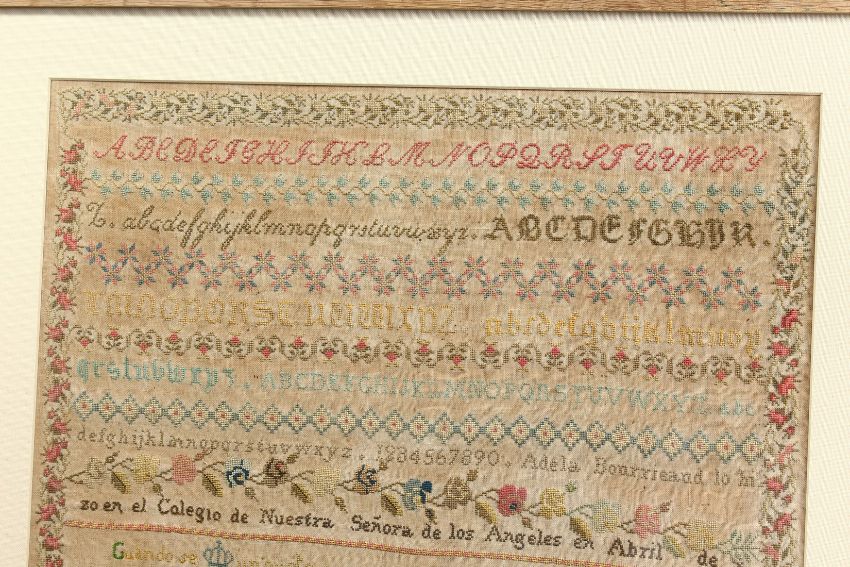 ABCDEFGHIJKLMNOPQRSTUVWXY
Z. abcdefghijklmnopqrstuvwxyz. ABCDEFGHIJK.
LMNOPQRSTUVWXYZ abcdefghijklmnop
qrstuvwxyz. ABCDEFGHIJKLMNOPQRSTUVWXYZ. abc
defghijklmnopqrstuvwxyz. 1234567890. Adela lo hi
zo en el Colegio de Nuestra Señora de los Angeles en Abril de
Cuando se